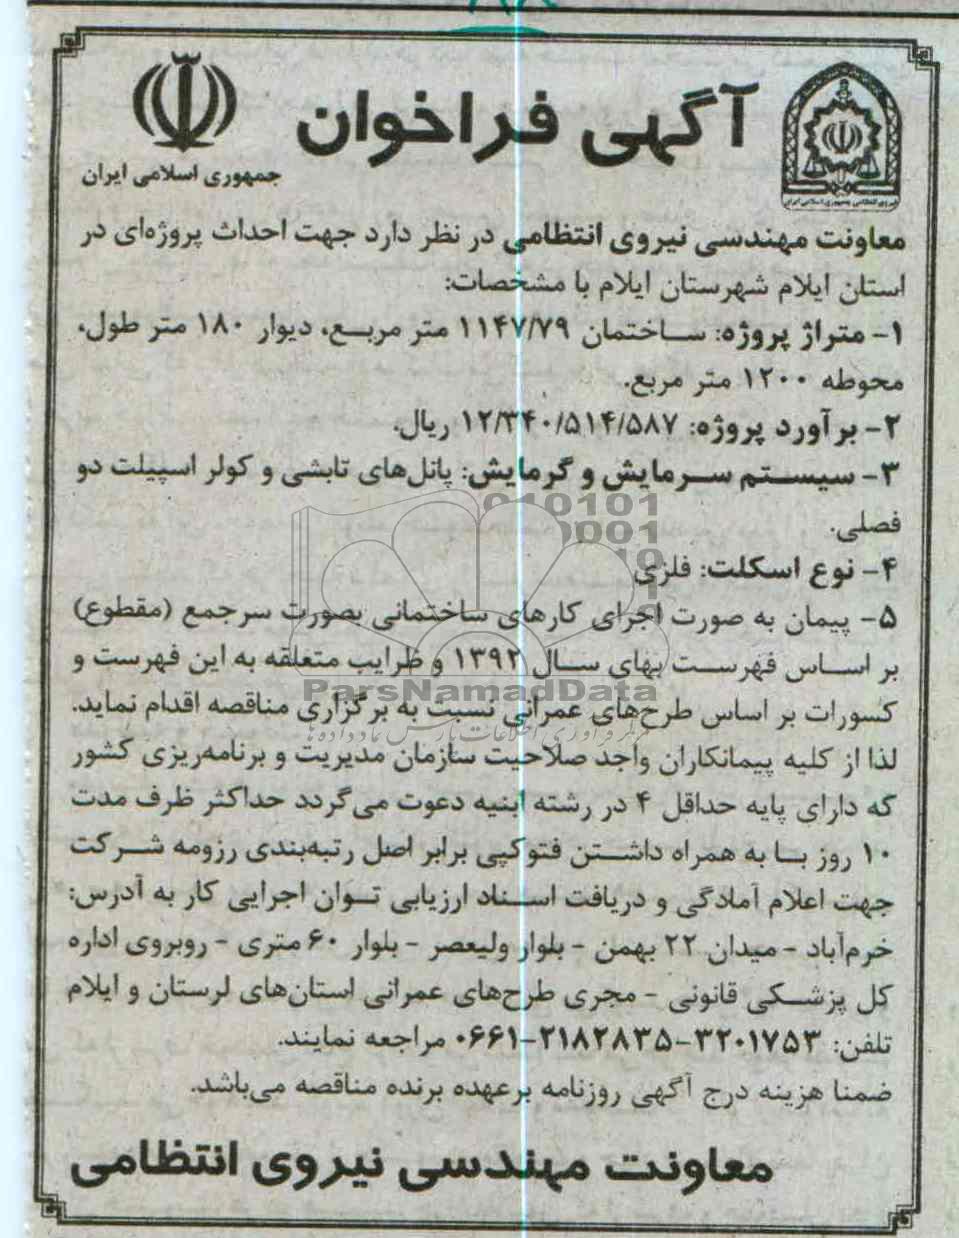 آگهی فراخوان
جمهوری اسلامی ایران
نیروی انتظامی جمهوری اسلامی ایران
معاونت مهندسی نیروی انتظامی در نظر دارد جهت احداث پروژه‌ای در
استان ایلام شهرستان ایلام با مشخصات:
۱- متراژ پروژه: ساختمان ۱۱۴۷/۷۹ متر مربع، دیوار ۱۸۰ متر طول،
محوطه ۱۲۰۰ متر مربع.
۲- برآورد پروژه: ۱۲/۳۴۰/۵۱۴/۵۸۷ ریال.
۳- سیستم سرمایش و گرمایش: پانل‌های تابشی و کولر اسپیلت دو
فصلی.
۴- نوع اسکلت: فلزی
۵- پیمان به صورت اجرای کارهای ساختمانی بصورت سرجمع (مقطوع)
بر اساس فهرست بهای سال ۱۳۹۲ و ظرایب متعلقه به این فهرست و
کسورات بر اساس طرح‌های عمرانی نسبت به برگزاری مناقصه اقدام نماید.
لذا از کلیه پیمانکاران واجد صلاحیت سازمان مدیریت و برنامه‌ریزی کشور
که دارای پایه حداقل ۴ در رشته ابنیه دعوت می‌گردد حداکثر ظرف مدت
۱۰ روز با به همراه داشتن فتوکپی برابر اصل رتبه‌بندی رزومه شرکت
جهت اعلام آمادگی و دریافت اسناد ارزیابی توان اجرایی کار به آدرس:
خرم‌آباد - میدان ۲۲ بهمن - بلوار ولیعصر - بلوار ۶۰ متری - روبروی اداره
کل پزشکی قانونی - مجری طرح‌های عمرانی استان‌های لرستان و ایلام
تلفن: ۳۲۰۱۷۵۳-۲۱۸۲۸۳۵-۰۶۶۱ مراجعه نمایند.
ضمنا هزینه درج آگهی روزنامه برعهده برنده مناقصه می‌باشد.
معاونت مهندسی نیروی انتظامی
ParsNamadData